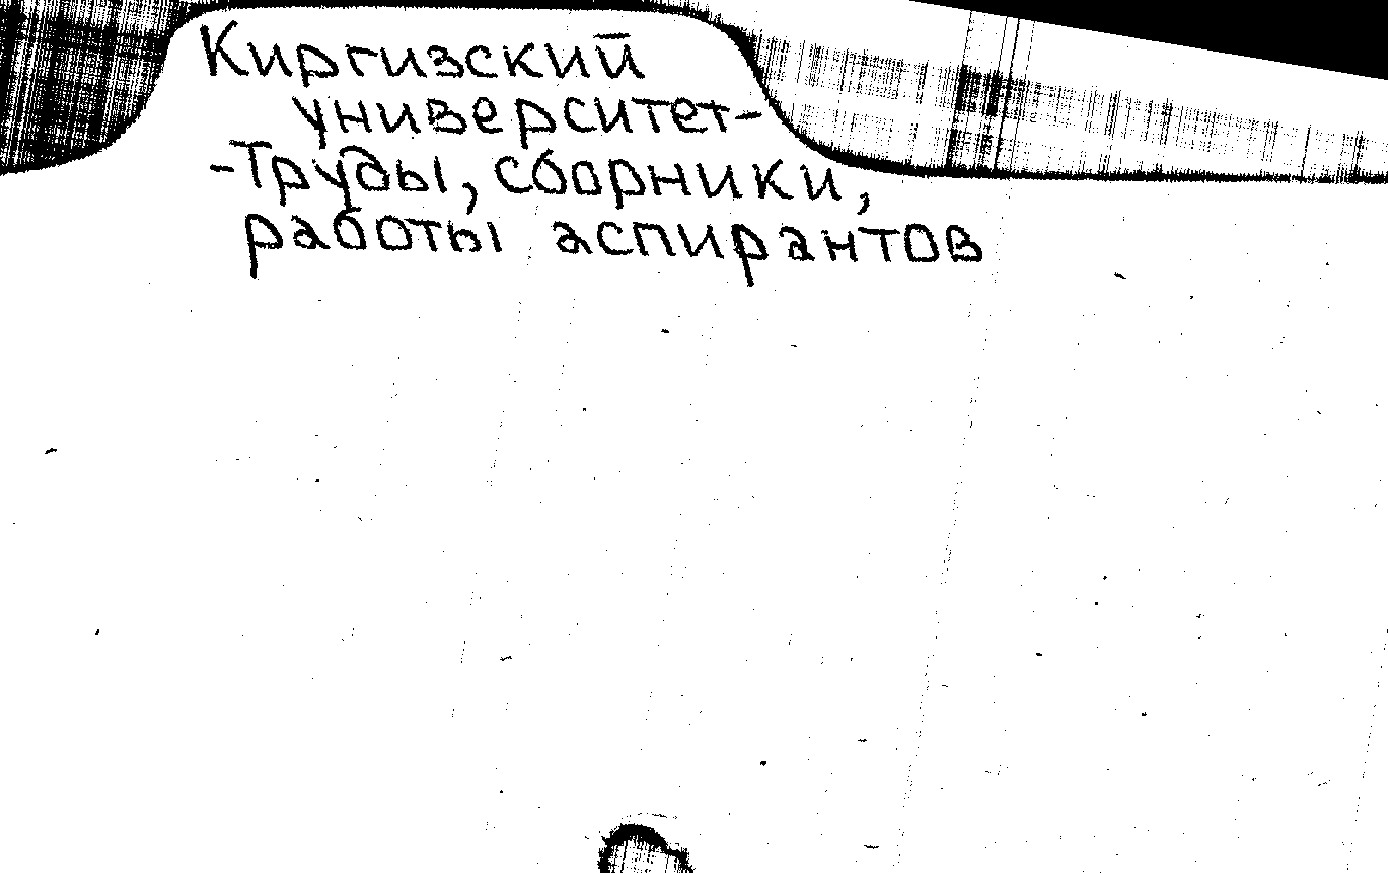 Киргизский
университет-
-Труды, сборники,
работы аспирантов